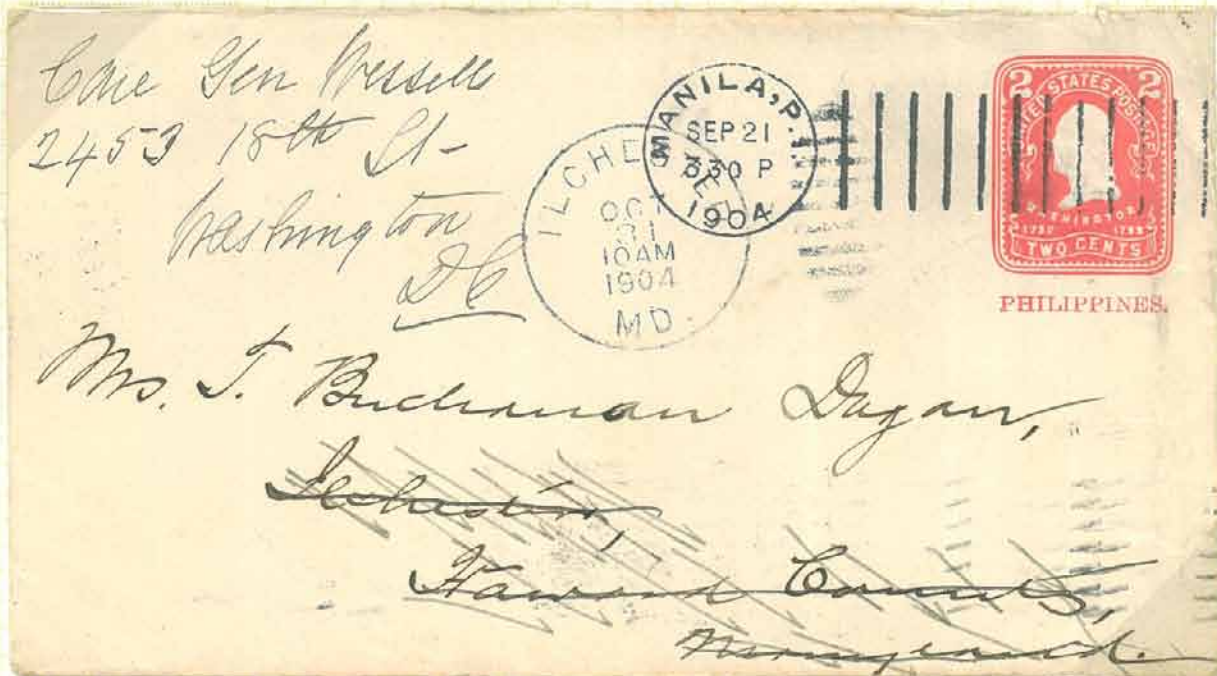 Care Gen Wessells
2453 18th St -
Washington
DC
MANILA, P.I.
SEP 21
330 P
1904
ILCHESTER
OCT
31
10AM
1904
MD.
2 2
UNITED STATES POSTAGE
WASHINGTON
1732 1799
TWO CENTS
PHILIPPINES.
Mrs. T. Buchanan Dugan,
Ilchester,
Howard County,
Maryland.